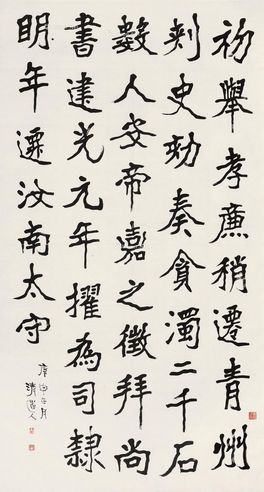 初舉孝廉稍遷青州
刺史劾奏貪濁二千石
數人安帝嘉之徵拜尚
書建光元年擢為司隸
明年遷汝南太守
庚申五月
清道人